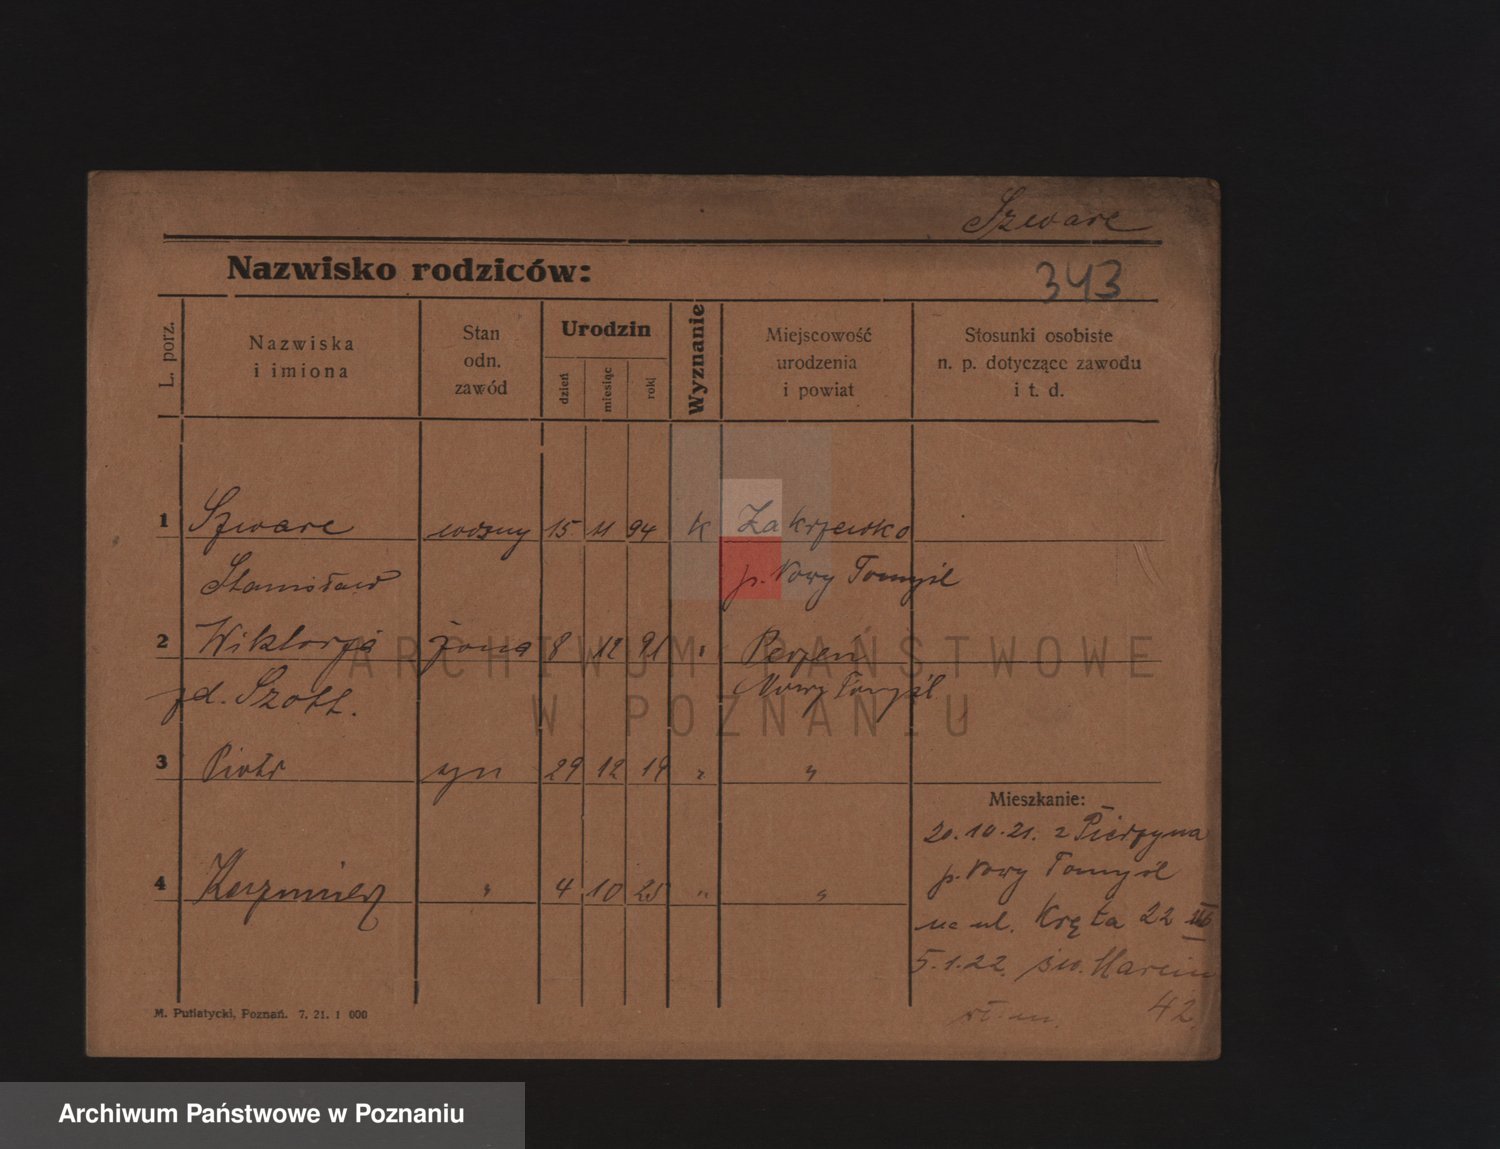 Szwarc
Nazwisko rodziców:
343
L. porz.
Nazwiska
i imiona
Stan
odn.
zawód
Urodzin
dzień
miesiąc
rok
Wyznanie
Miejscowość
urodzenia
i powiat
Stosunki osobiste
n. p. dotyczące zawodu
i t. d.
1 Szwarc 15 11 94 k Zakrzewko
Stanisław p. Nowy Tomyśl
2 Wiktorja żona 8 12 91 " 
zd. Szott. Nowy Tomyśl
3 Piotr syn 29 12 19 " "
Mieszkanie:
20.10.21. z
p. Nowy Tomyśl
4 Kazimierz " 4 10 " "
na ul. Kręta 22
5.1.22. św. Marcin
42
M. Putiatycki, Poznań. 7. 21. 1 000
ARCHIWUM PAŃSTWOWE
W POZNANIU
Archiwum Państwowe w Poznaniu